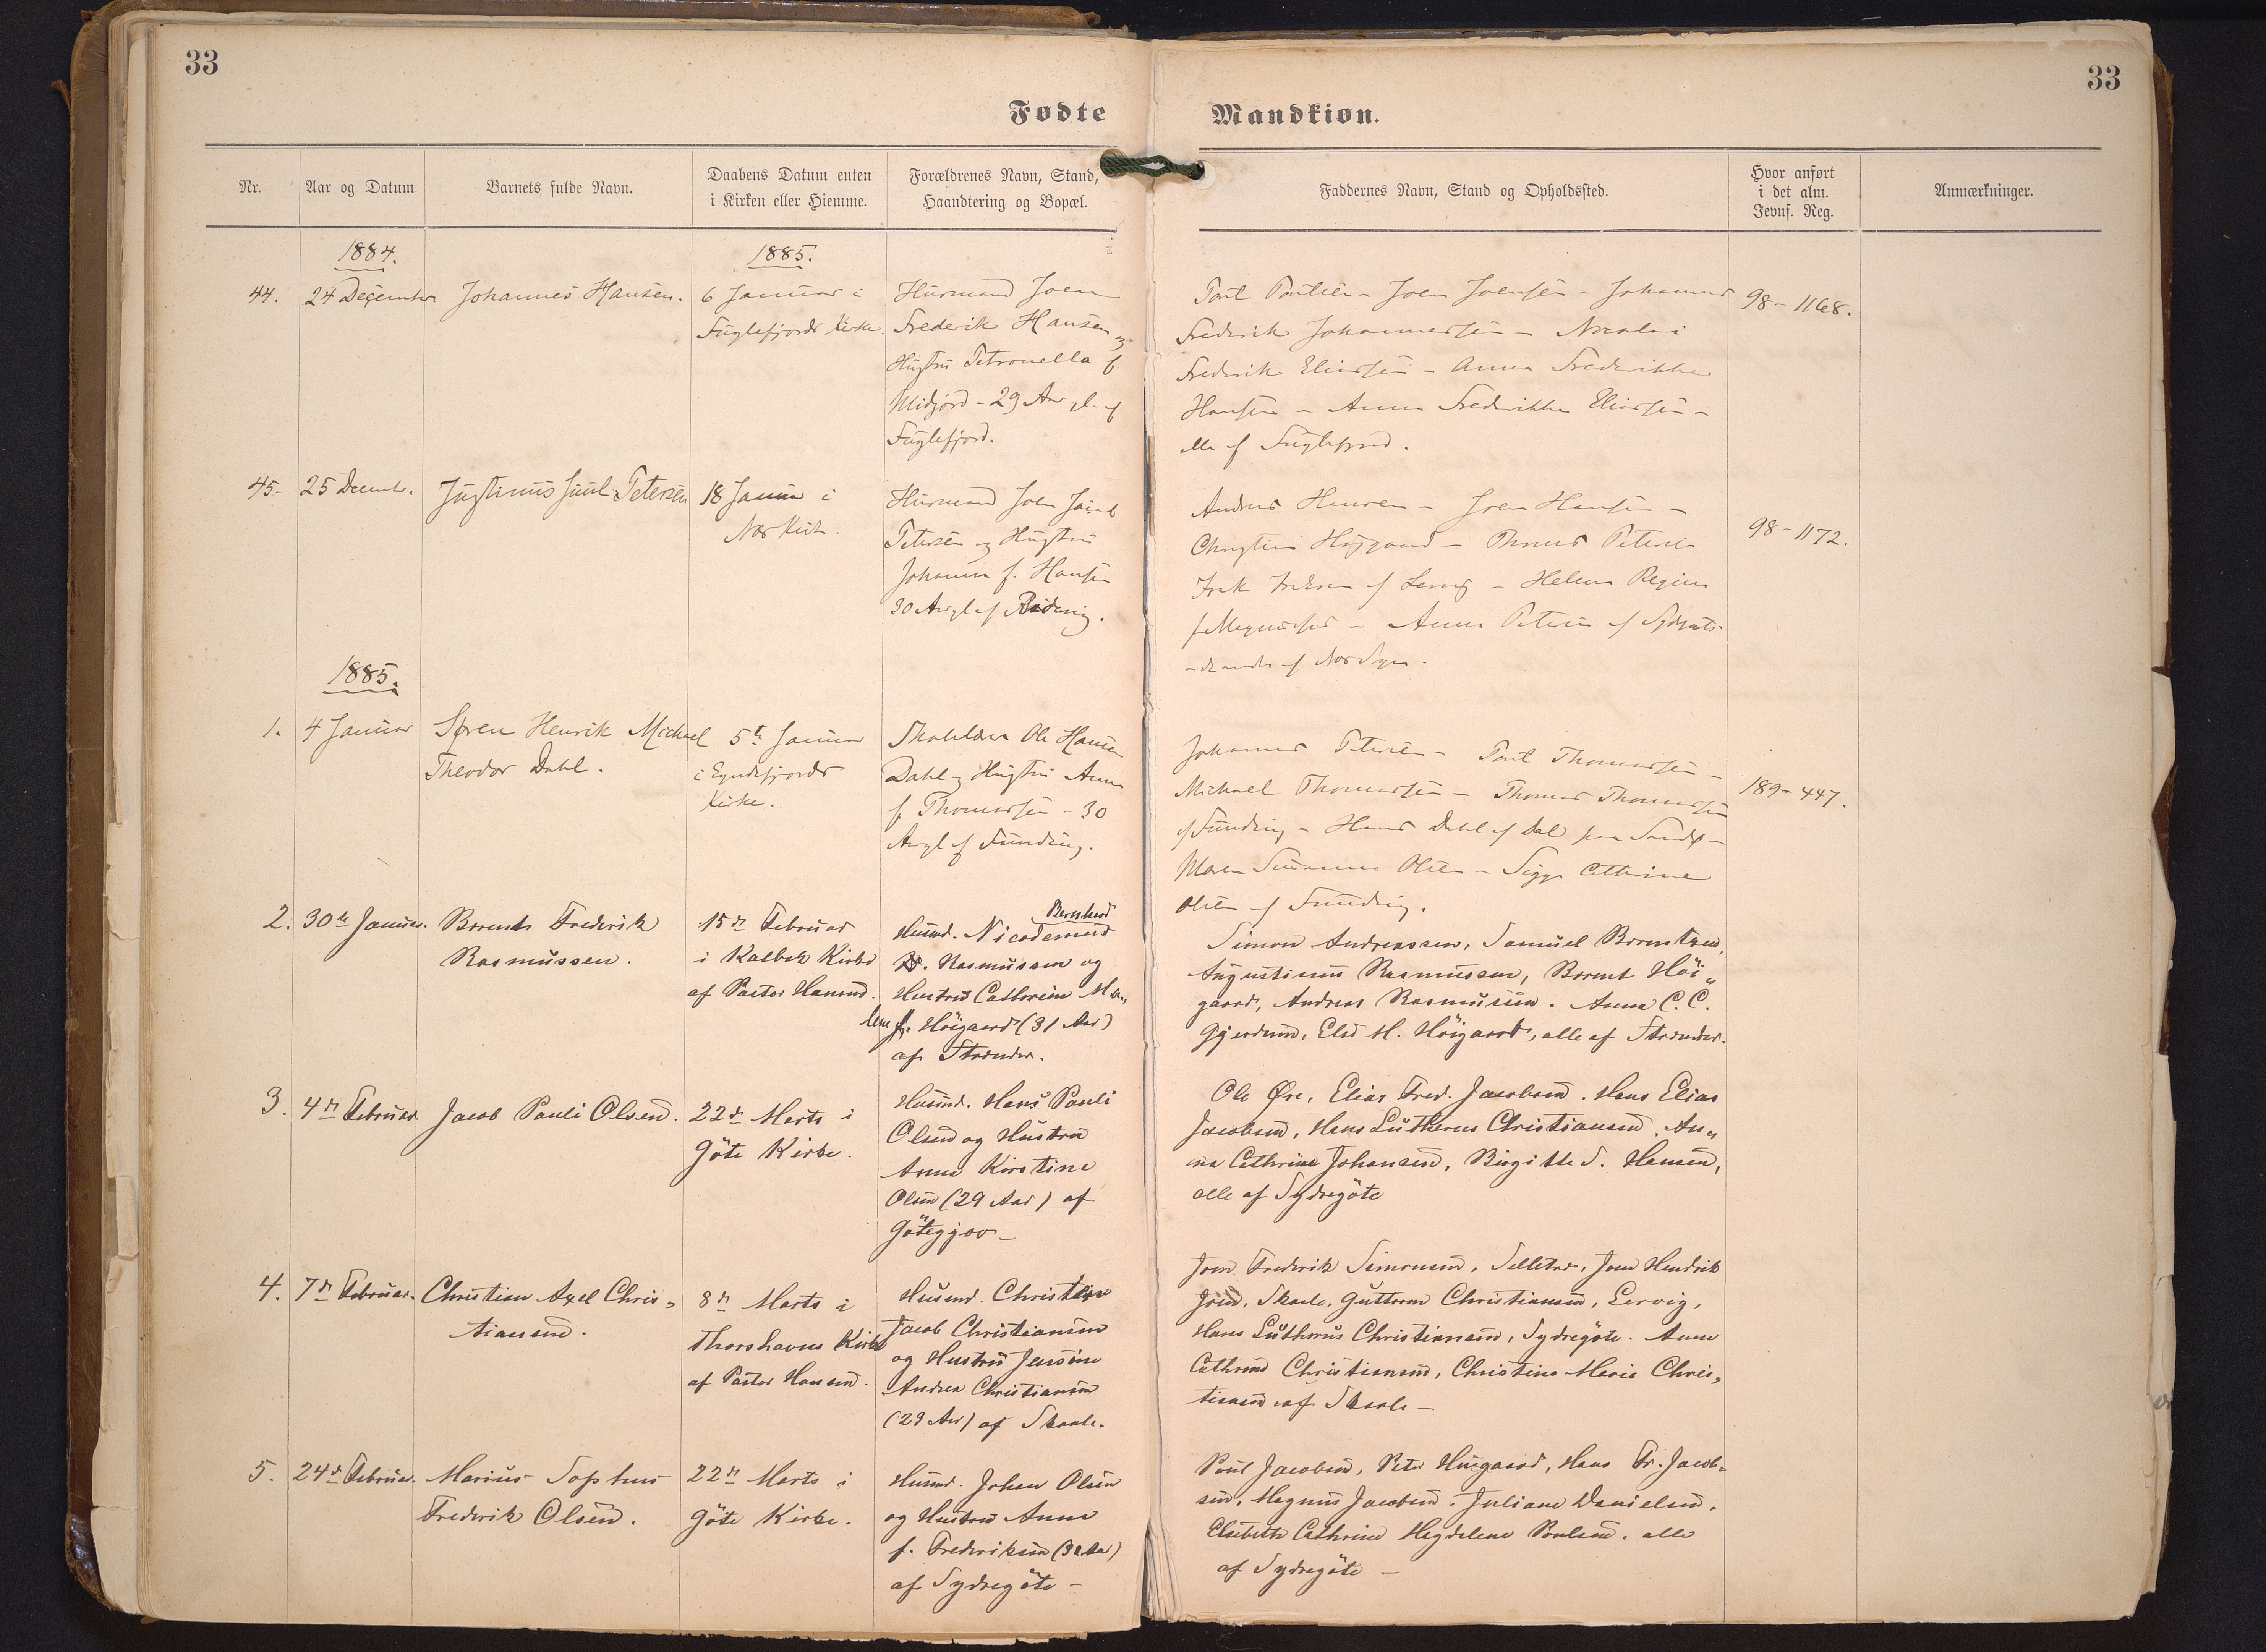 33
33
Fødte
Mandkiøn.
Nr.
Aar og Datum.
Barnets fulde Navn.
Daabens Datum enten
i Kirken eller Hiemme.
Forældrenes Navn, Stand,
Haandtering og Bopæl.
Faddernes Navn, Stand og Opholdssted.
Hvor anført
i det alm.
Jevnf. Reg.
Anmærkninger.
1884.
1885.
44.
24 December
Johannes Hansen.
6 Januar i
Fuglefjords Kirke.
Husmand Joen
Frederik Hansen og
Hustru Petronella f.
Midjord - 29 Aar gl. af
Fuglefjord.
Poul Poulsen - Joen Joensen - Johannes
Frederik Johannessen - Nicolai
Frederik Eliassen - Anna Frederikke
Hansen - Anna Frederikke Eliassen -
alle af Fuglefjord.
98 - 1168.
45.
25 Decemb.
Justinus Juul Petersen
18 Januar i
Næs Kirke.
Husmand Joen Jacob
Petersen og Hustru
Johanna f. Hansen
30 Aar gl. af
Andreas Hansen - Joen Hansen -
Højgaard - Thomas Petersen
af Lervig - Helene Regine
- Anna Petersen af
af
98 - 1172.
1885.
1.
4 Januar
Søren Henrik Michael
Theodor Dahl.
5te Januar
i Eyndefjords
Kirke.
Ole Hansen
Dahl og Hustru Anna
f. Thomassen - 30
Aar gl. af Funding.
Johannes Petersen - Poul Thomassen -
Michael Thomassen - Thomas Thomassen
af Funding - Hans Dahl af Dal paa Sandø -
Maren Susanna Olsen - Sigga Cathrine
Olsen af Funding.
189 - 447.
2.
30te Januar.
Berent Frederik
Rasmussen.
15de Februar
i Kalbak Kirke
af Pastor Hansen.
Bernhard
Husmd. Nicodemus
Rasmussen og
Hustru Cathrine Ma„
lene f. Höigaard (31 Aar)
af Strender.
Simon Andreassen, Samuel Berentsen,
Augustinus Rasmussen, Berent Höi„
gaard, Andreas Rasmussen. Anna C. C.
Gjerdum, Else M. Höigaard, alle af Strender.
3.
4de Februar.
Jacob Pauli Olsen.
22de Marts i
Göte Kirke.
Husmd. Hans Pauli
Olsen og Hustru
Anna Kirstine
Olsen (29 Aar) af
Götegjov -
Ole Øre, Elias Fred. Jacobsen. Hans Elias
Jacobsen, Hans Lutherus Christiansen. An„
na Cathrine Johansen, Birgitte S. Hansen,
alle af Sydregöte
4.
7de Februar.
Christian Axel Chris„
tiansen.
8de Marts i
Thorshavns Kirke
af Pastor Hansen.
Husmd. Christian
Jacob Christiansen
og Hustru Jensine
Andrea Christiansen
(29 Aar) af Skaale.
Joen Frederik Simonsen, Selletræ, Joen Hendrik
Skaale, Guttorm Christiansen, Lervig,
Hans Lutherus Christiansen, Sydregöte. Anne
Cathrine Christiansen, Christine Marie Chris„
tiansen af Skaale -
5.
24de Februar.
Marius Sophus
Frederik Olsen.
22de Marts i
Göte Kirke.
Husmd. Johan Olsen
og Hustru Anna
f. Frederiksen (32 Aar)
af Sydregöte -
Poul Jacobsen, Peter Huusgaard, Hans Fr. Jacob„
sen, Magnus Jacobsen. Juliane Danielsen,
Elsebeth Cathrine Magdalene Poulsen, alle
af Sydregöte -